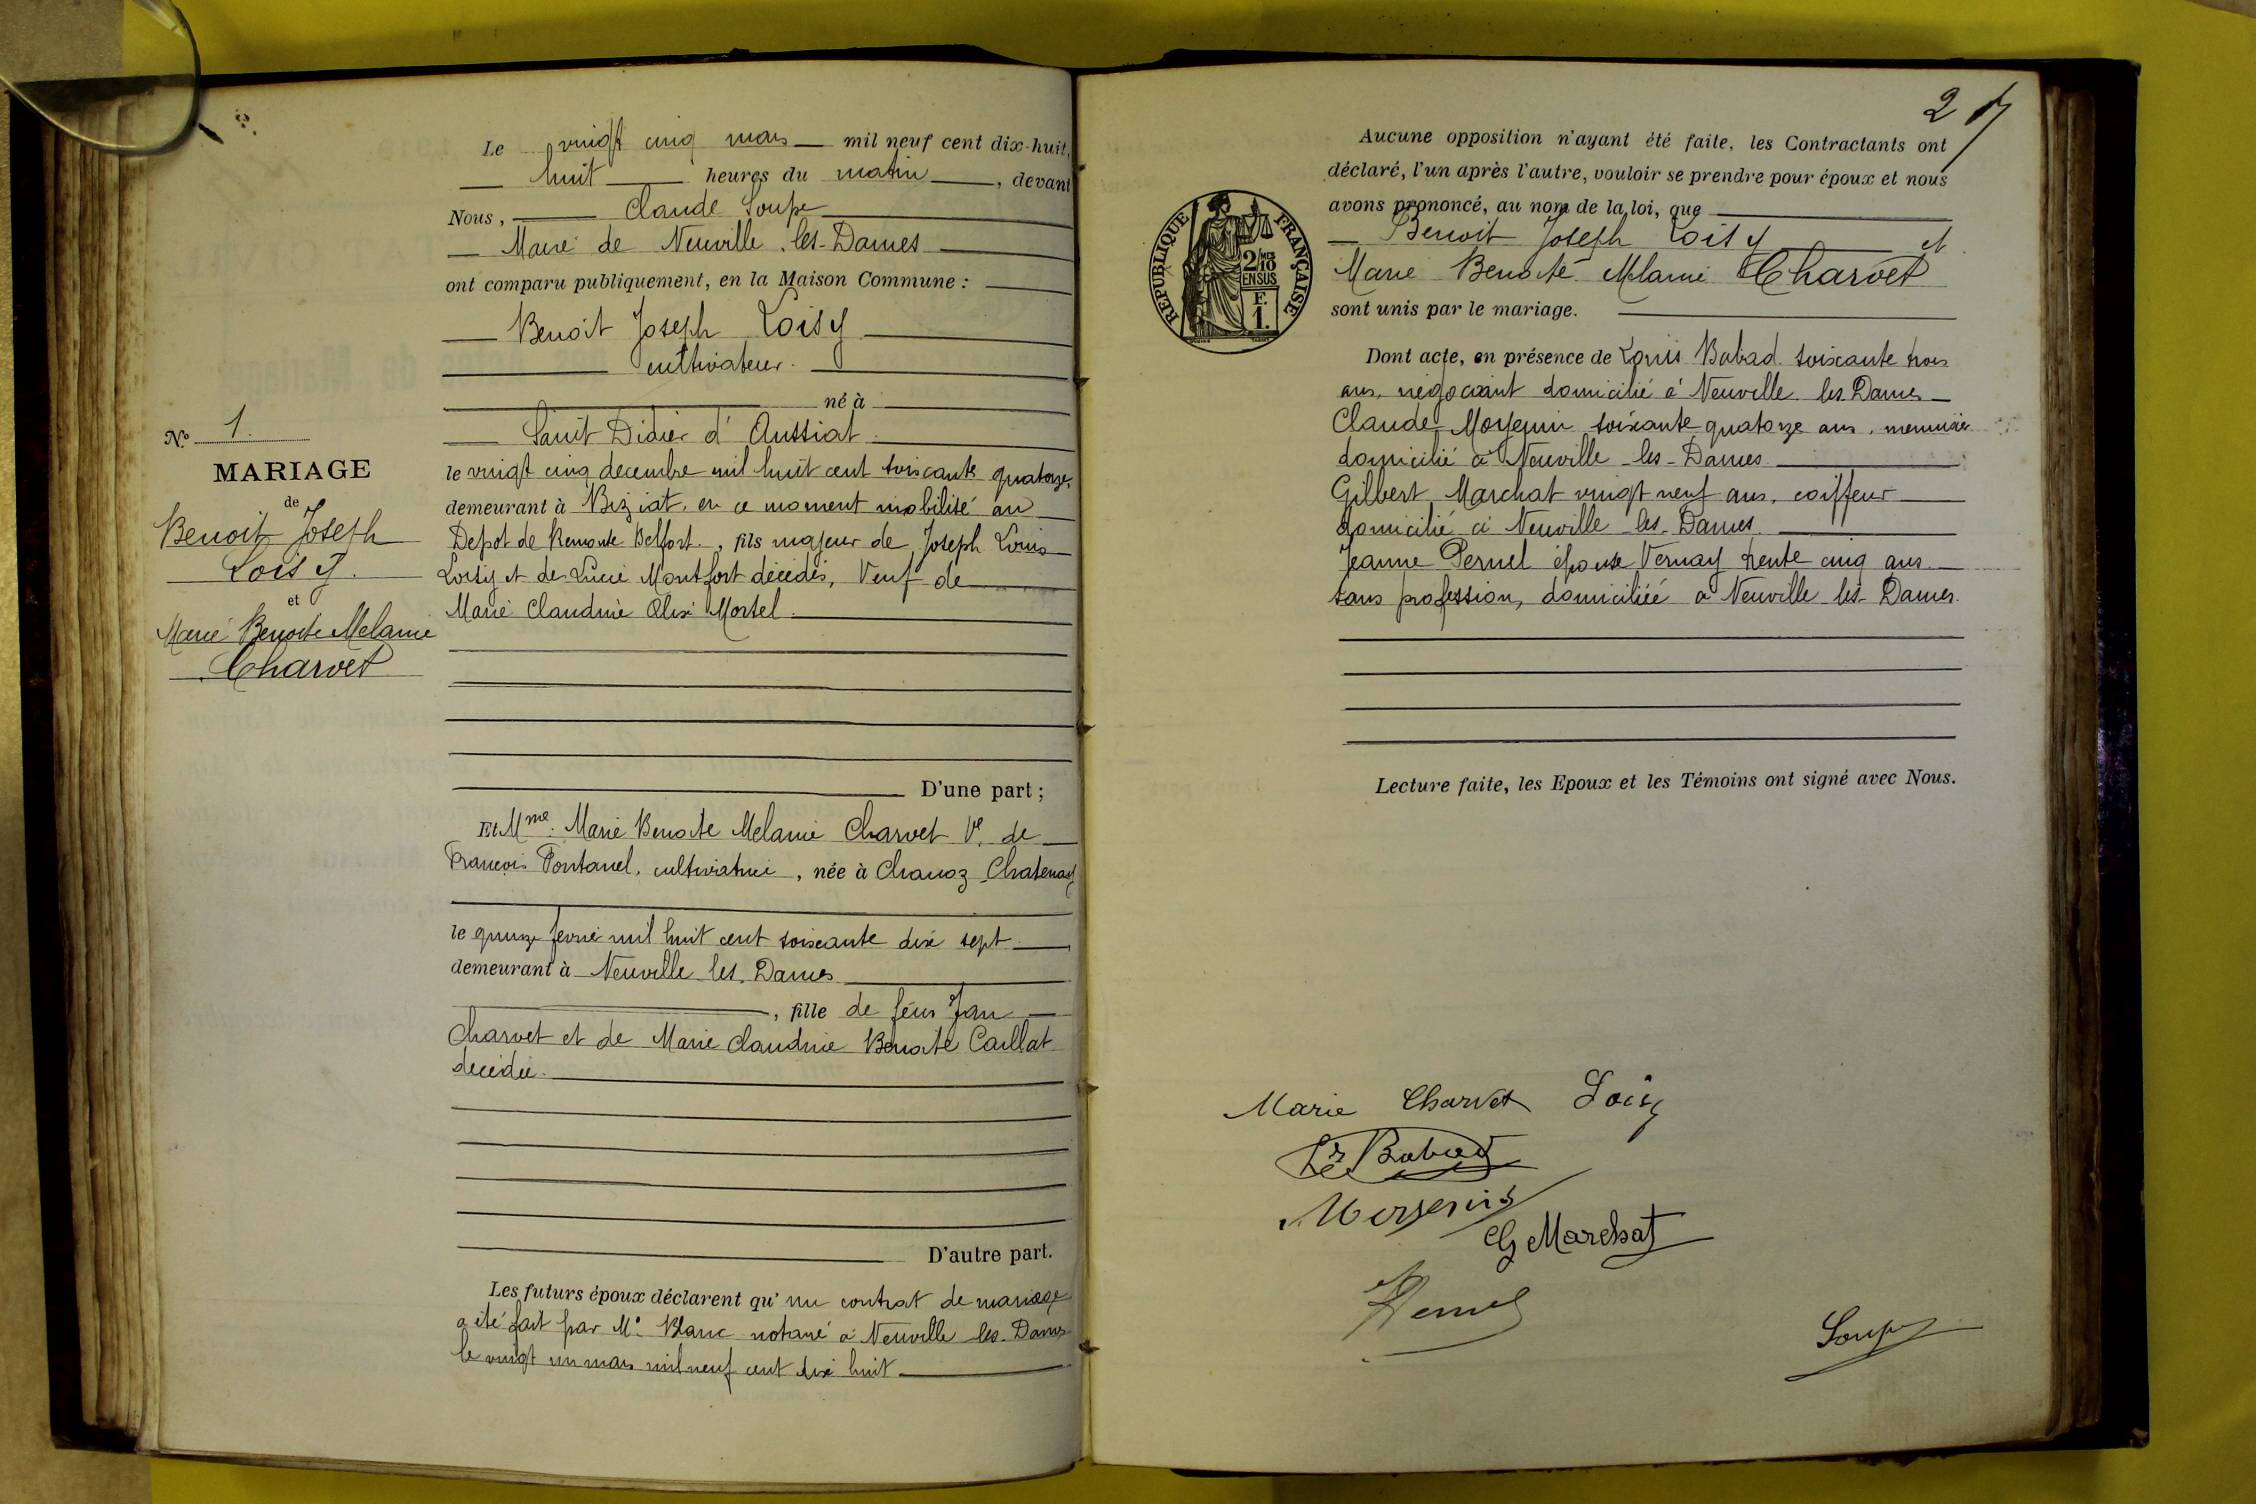 Le vingt cinq mars mil neuf cent dix-huit,
huit heures du matin, devant
Nous, Claude Soupe
Maire de Neuville les-Dames
ont comparu publiquement, en la Maison Commune :
Benoit Joseph Loisy
cultivateur.
né à
Saint Didier d'Aussiat
le vingt cinq decembre mil huit cent soixante quatorze,
demeurant à Biziat, en ce moment mobilisé au
Depot de Remonte Belfort, fils majeur de Joseph Louis
Loisy et de Lucie Montfort décédés, Veuf de
Marie Claudine Alix Mortel.
D'une part ;
N° 1.
MARIAGE
de
Benoit Joseph
Loisy.
et
Marie Benoite Melanie
Charvet
Et Mme Marie Benoite Melanie Charvet Ve de
François Pontanel, cultivatrice, née à Chanoz-Chatenay
le quinze fevrier mil huit cent soixante dix sept
demeurant à Neuville les Dames
, fille de feus Jean
Charvet et de Marie Claudine Benoite Caillat
décédée.
D'autre part.
Les futurs époux déclarent qu'un contrat de mariage
a été fait par Me Blanc notaire à Neuville les-Dames
le vingt un mars mil neuf cent dix huit
2
Aucune opposition n'ayant été faite, les Contractants ont
déclaré, l'un après l'autre, vouloir se prendre pour époux et nous
avons prononcé, au nom de la loi, que
Benoit Joseph Loisy et
Marie Benoite Melanie Charvet
sont unis par le mariage.
RÉPUBLIQUE FRANÇAISE
2/10
EN SUS
F.
1.
Dont acte, en présence de Louis Babad soixante trois
ans, négociant domicilié à Neuville les Dames
Claude Moysenin soixante quatorze ans, menuisier
domicilié à Neuville-les-Dames
Gilbert Marchat vingt neuf ans, coiffeur
domicilié à Neuville les-Dames
Jeanne Pernel épouse Vernay trente cinq ans
sans profession, domiciliée à Neuville les Dames.
Lecture faite, les Epoux et les Témoins ont signé avec Nous.
Marie Charvet Loisy
Babad
G Marchat
Soupe